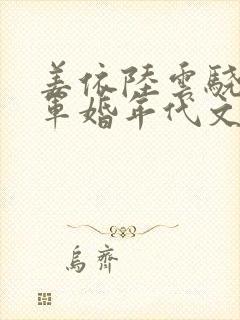 姜依陸雲驍
軍婚年代文
烏齊